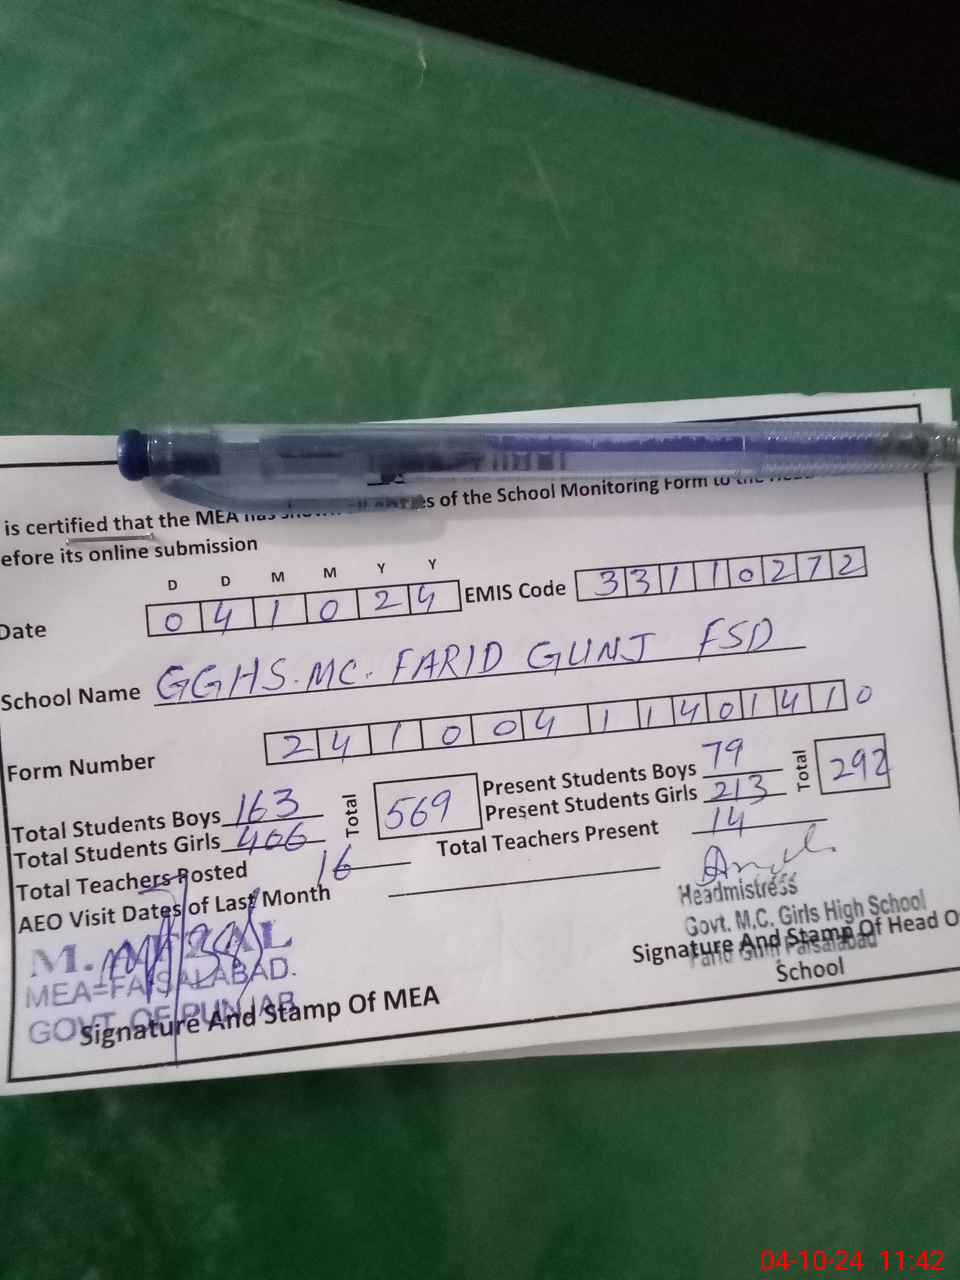 is certified that the MEA has shown all entries of the School Monitoring Form to the Head
efore its online submission
D D M M Y Y
Date 0 4 1 0 2 4 EMIS Code 3 3 1 1 0 2 7 2
School Name GGHS. MC. FARID GUNJ FSD
Form Number 2 4 1 0 0 4 1 1 4 0 1 4 1 0
Total Students Boys 163 Total 569 Present Students Boys 79 Total 292
Total Students Girls 406 Present Students Girls 213
Total Teachers Posted 16 Total Teachers Present 14
AEO Visit Dates of Last Month
Headmistress
Govt. M.C. Girls High School
Farid Gunj Faisalabad
Signature And Stamp Of Head O
School
M.
MEA=FAISALABAD.
GOVT. OF PUNJAB
Signature And Stamp Of MEA
04-10-24 11:42